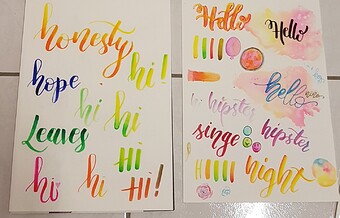 honesty
hope
hi!
hi
hi
Leaves
Hi
hi
hi
Hi!
Hello
Hello
hello
hipster
singe
hipster
night